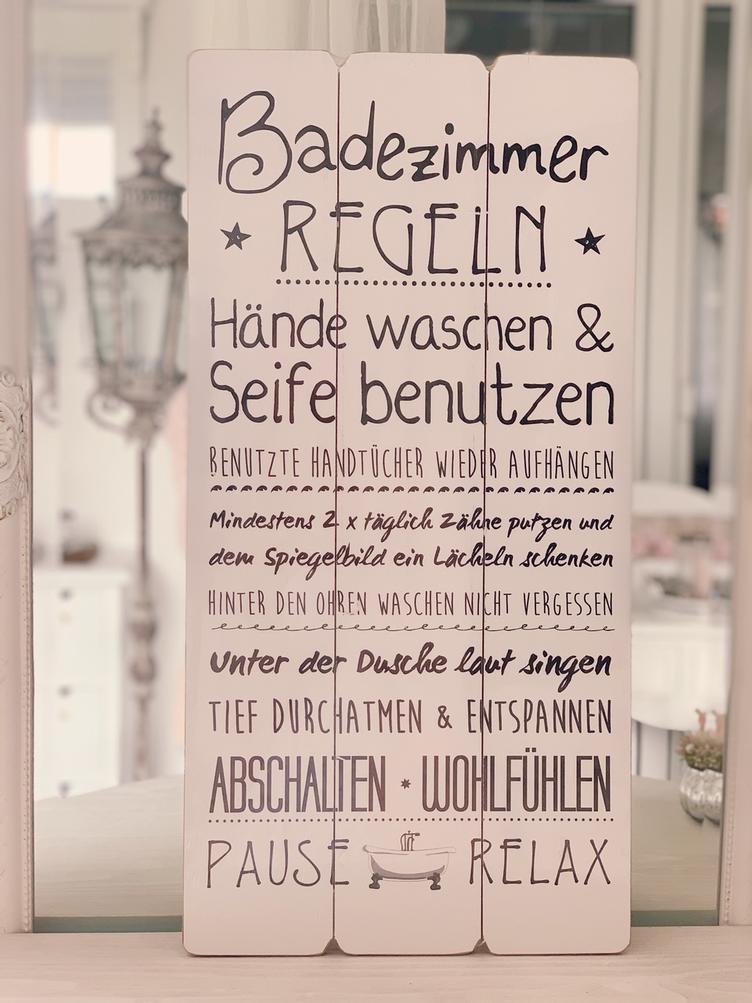 Badezimmer
REGELN
Hände waschen &
Seife benutzen
BENUTZTE HANDTÜCHER WIEDER AUFHÄNGEN
Mindestens 2 x täglich Zähne putzen und
dem Spiegelbild ein Lächeln schenken
HINTER DEN OHREN WASCHEN NICHT VERGESSEN
Unter der Dusche laut singen
TIEF DURCHATMEN & ENTSPANNEN
ABSCHALTEN * WOHLFÜHLEN
PAUSE RELAX